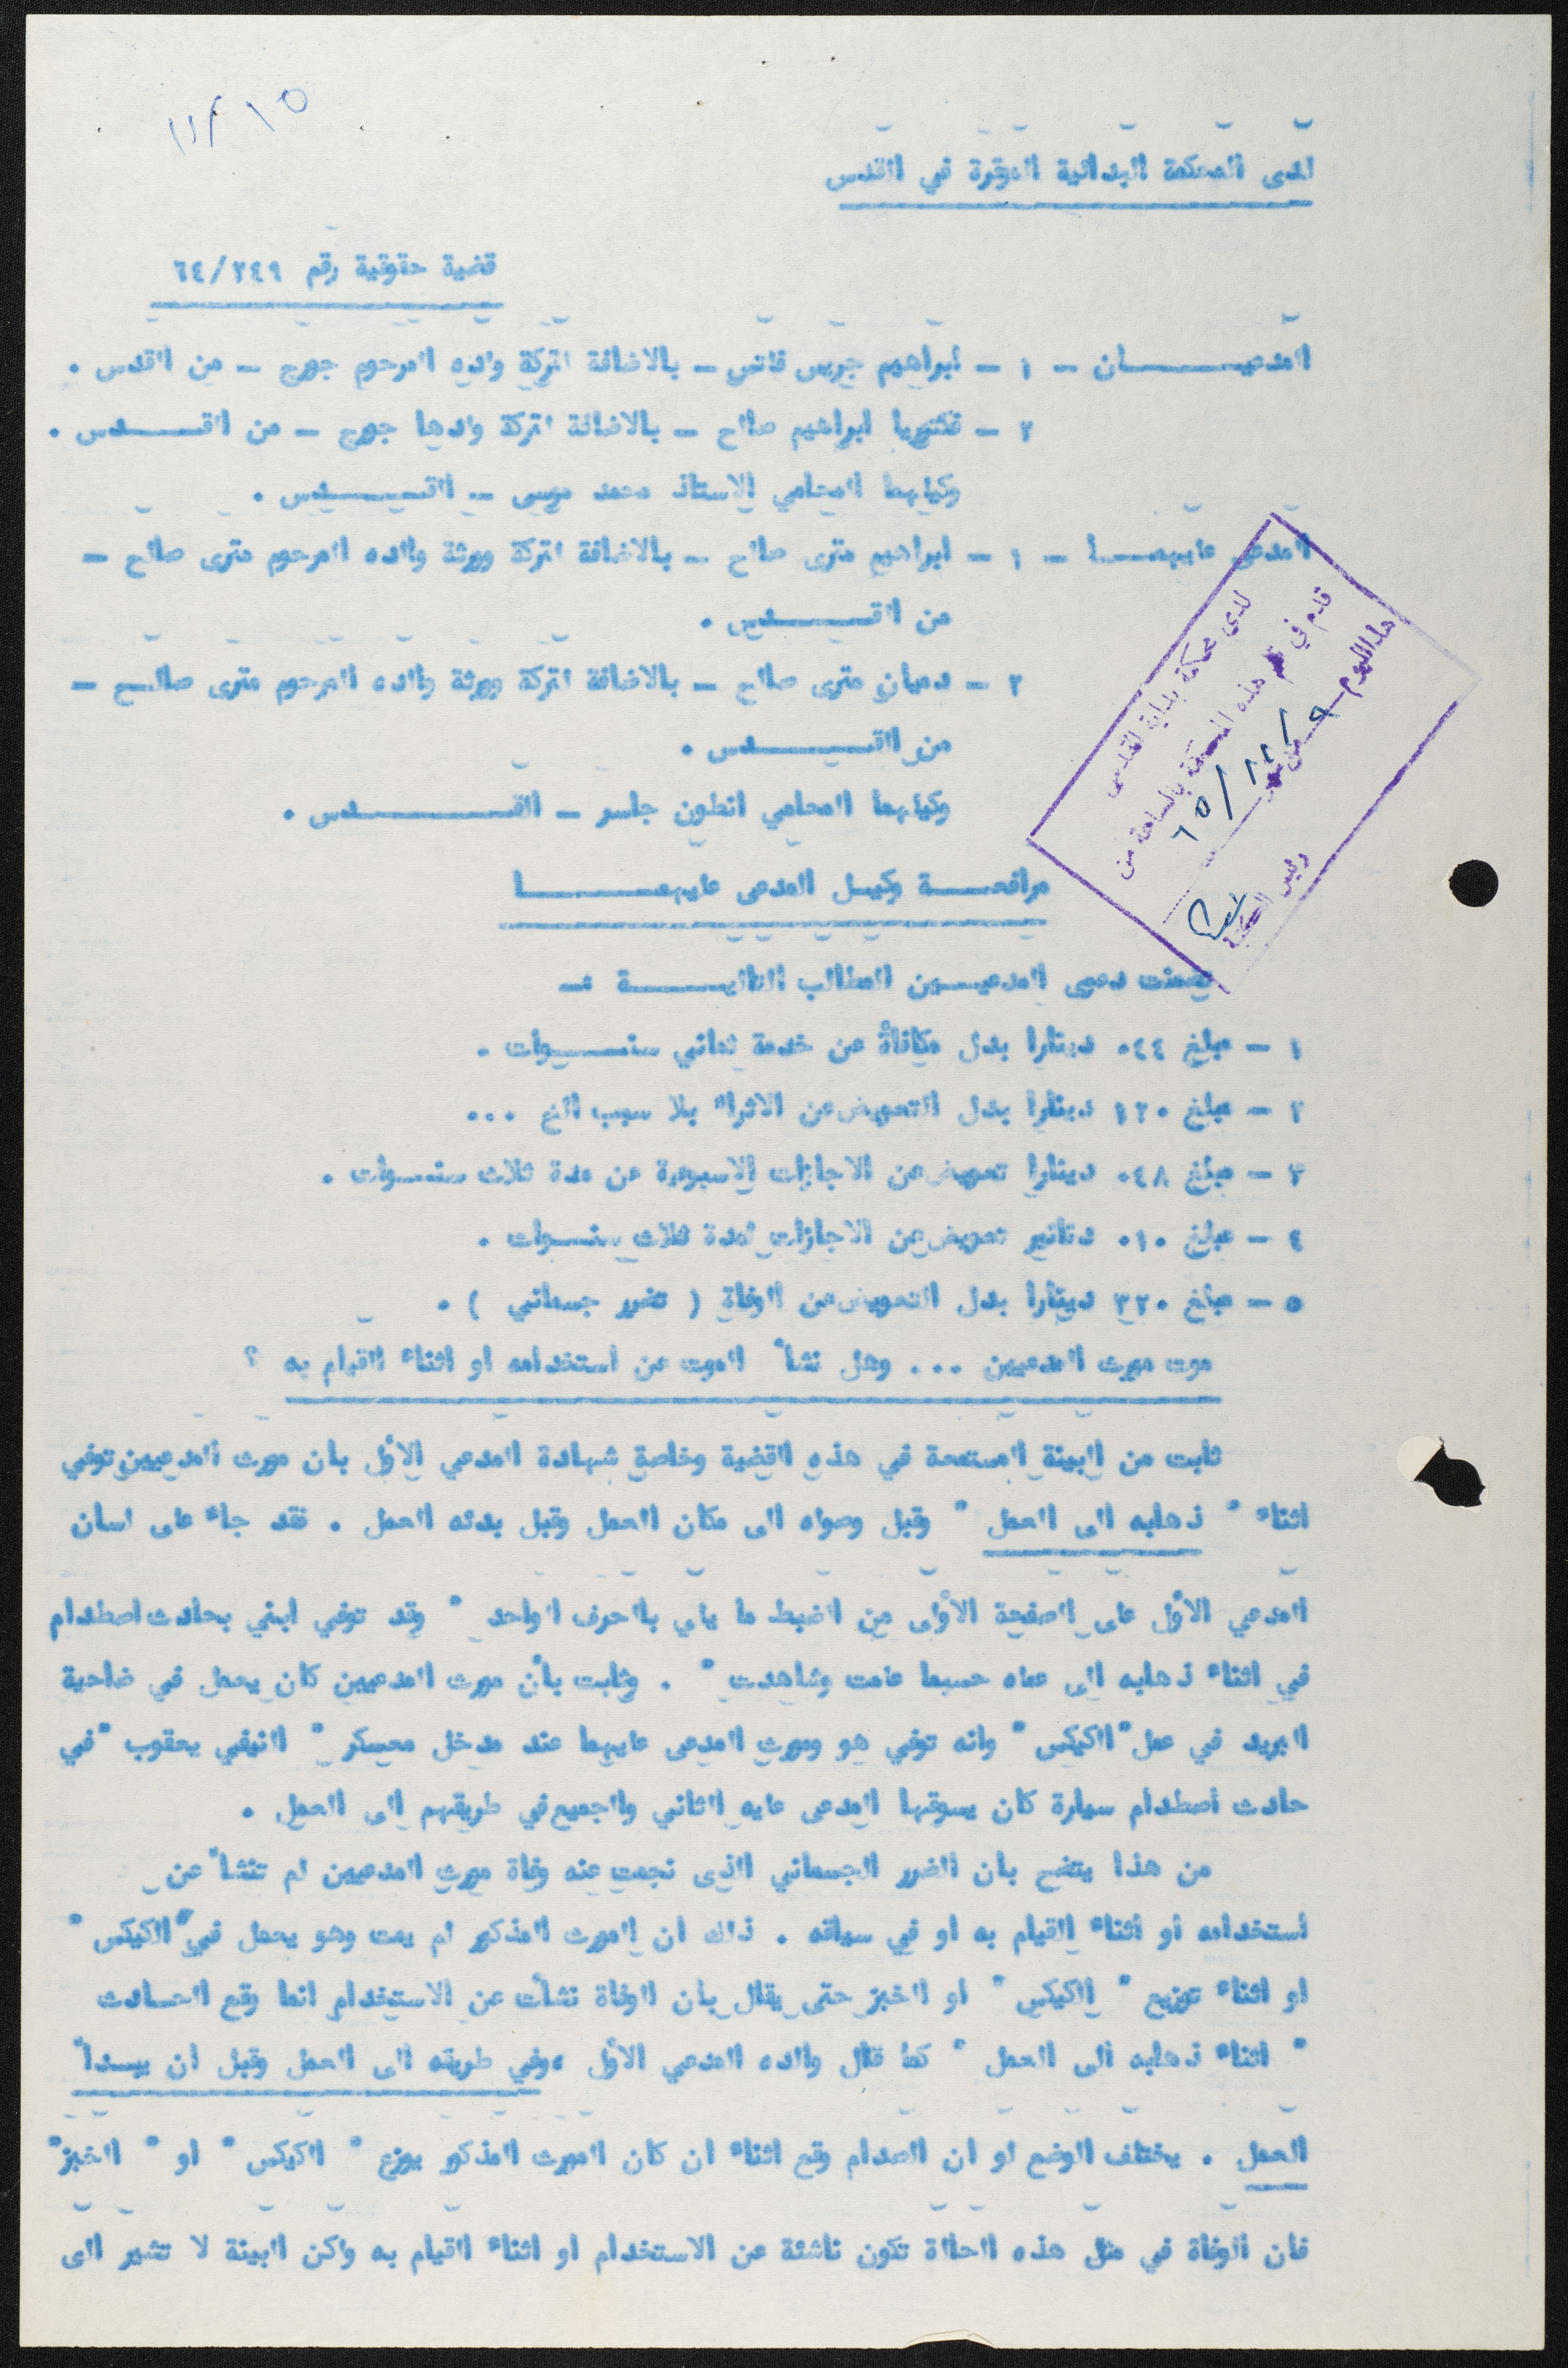 ١٥ / ١١
لدى المحكمة البدائية الموقرة في القدس
قضية حقوقية رقم ٦٤/٢٤٩
المدعيـــــــان – ١ – ابراهيم جريس فاتس – بالاضافة لتركة ولده المرحوم جورج – من القدس .
٢ – فكتوريا ابراهيم صالح – بالاضافة لتركة ولدها جورج – من القـــــدس .
وكيلهما المحامي الاستاذ محمد موسى – القـــــدس .
المدعى عليهمـــا – ١ – ابراهيم متري صالح – بالاضافة لتركة وورثة والده المرحوم متري صالح –
من القـــــدس .
٢ – دميان متري صالح – بالاضافة لتركة وورثة والده المرحوم متري صالح –
من القـــــدس .
وكيلهما المحامي انطون جاسر – القـــــــدس .
لدى محكمة بداية القدس
قدم في قلم هذه المحكمة بالساعة من
هذا اليوم ٩ من شهر / ١٢ / ٦٥
رئيس الكتبة
مرافعـــة وكيـل المدعى عليهمـــــا
تضمنت دعوى المدعيـــين المطالب التاليـــــة :–
١ – مبلغ ٠٤٤ دينارا بدل مكافأة عن خدمة ثماني سنـــوات .
٢ – مبلغ ١٢٠ دينارا بدل التعويض عن الاثراء بلا سبب الخ ...
٣ – مبلغ ٠٤٨ دينارا تعويض عن الاجازات الاسبوعية عن مدة ثلاث سنــوات .
٤ – مبلغ ٠١٠ دنانير تعويض عن الاجازات لمدة ثلاث سنــوات .
٥ – مبلغ ٣٢٠ دينارا بدل التعويض عن الوفاة ( تضرر جسماني ) .
موت مورث المدعيين ... وهل نشأ الموت عن استخدامه او اثناء القيام به ؟
ثابت من البينة المستمعة في هذه القضية وخاصة شهادة المدعي الاول بان مورث المدعيين توفي
اثناء " ذهابه الى العمل " وقبل وصوله الى مكان العمل وقبل بدئه العمل . فقد جاء على لسان
المدعي الاول على الصفحة الأولى من الضبط ما يلي بالحرف الواحد " وقد توفي ابني بحادث اصطدام
في اثناء ذهابه الى عمله حسبما علمت وشاهدت " . وثابت بأن مورث المدعيين كان يعمل في ضاحية
البريد في عمل "الكيكس" وانه توفي هو ومورث المدعى عليهما عند مدخل معسكر " النيفي يعقوب " في
حادث اصطدام سيارة كان يسوقها المدعى عليه الثاني والجميع في طريقهم الى العمل .
من هذا يتضح بان الضرر الجسماني الذى نجمت عنه وفاة مورث المدعيين لم تنشأ عن
استخدامه او أثناء القيام به او في سياقه . ذلك ان المورث المذكور لم يمت وهو يعمل في "الكيكس"
او اثناء توزيع " الكيكس " او الخبز حتى يقال بان الوفاة نشأت عن الاستخدام انما وقع الحــادث
" اثناء ذهابه الى العمل " كما قال والده المدعي الأول ، وفي طريقه الى العمل وقبل ان يبــدأ
العمل . يختلف الوضع لو ان الصدام وقع اثناء ان كان المورث المذكور يوزع " الكيكس " او " الخبز"
فان الوفاة في مثل هذه الحالة تكون ناشئة عن الاستخدام او اثناء القيام به ولكن البينة لا تشير الى